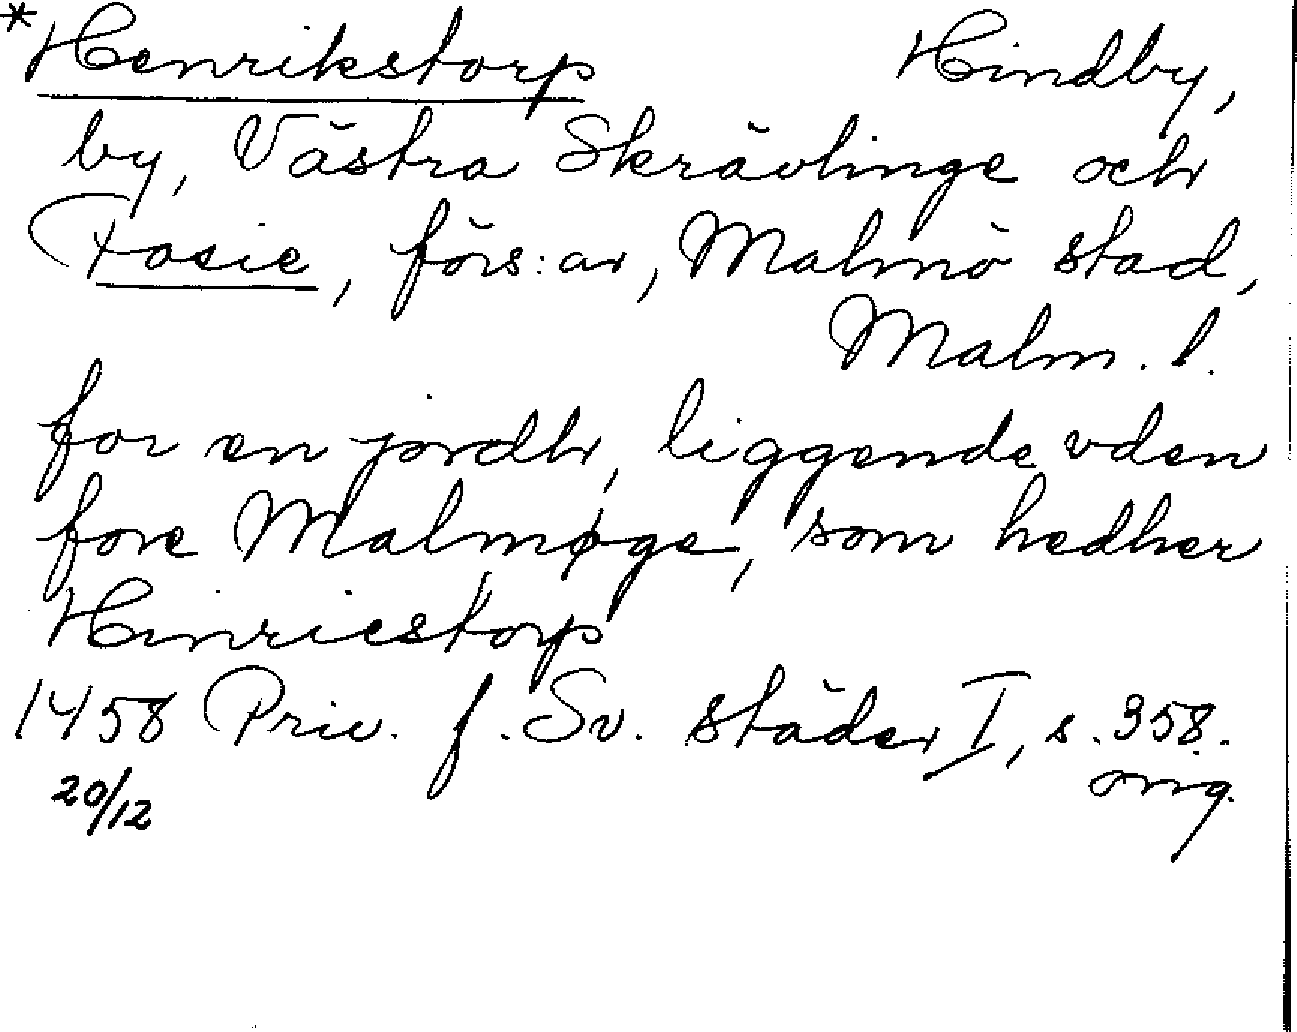 *Henrikstorp Hindby,
by, Västra Skrävlinge och
Fosie, förs:ar, Malmö stad,
Malm. l.
for en jordh, liggende vden
fore Malmøge, som hedher
Hinricstorp
1458 Priv. f. Sv. städer I, s. 358.
20/12 orig.